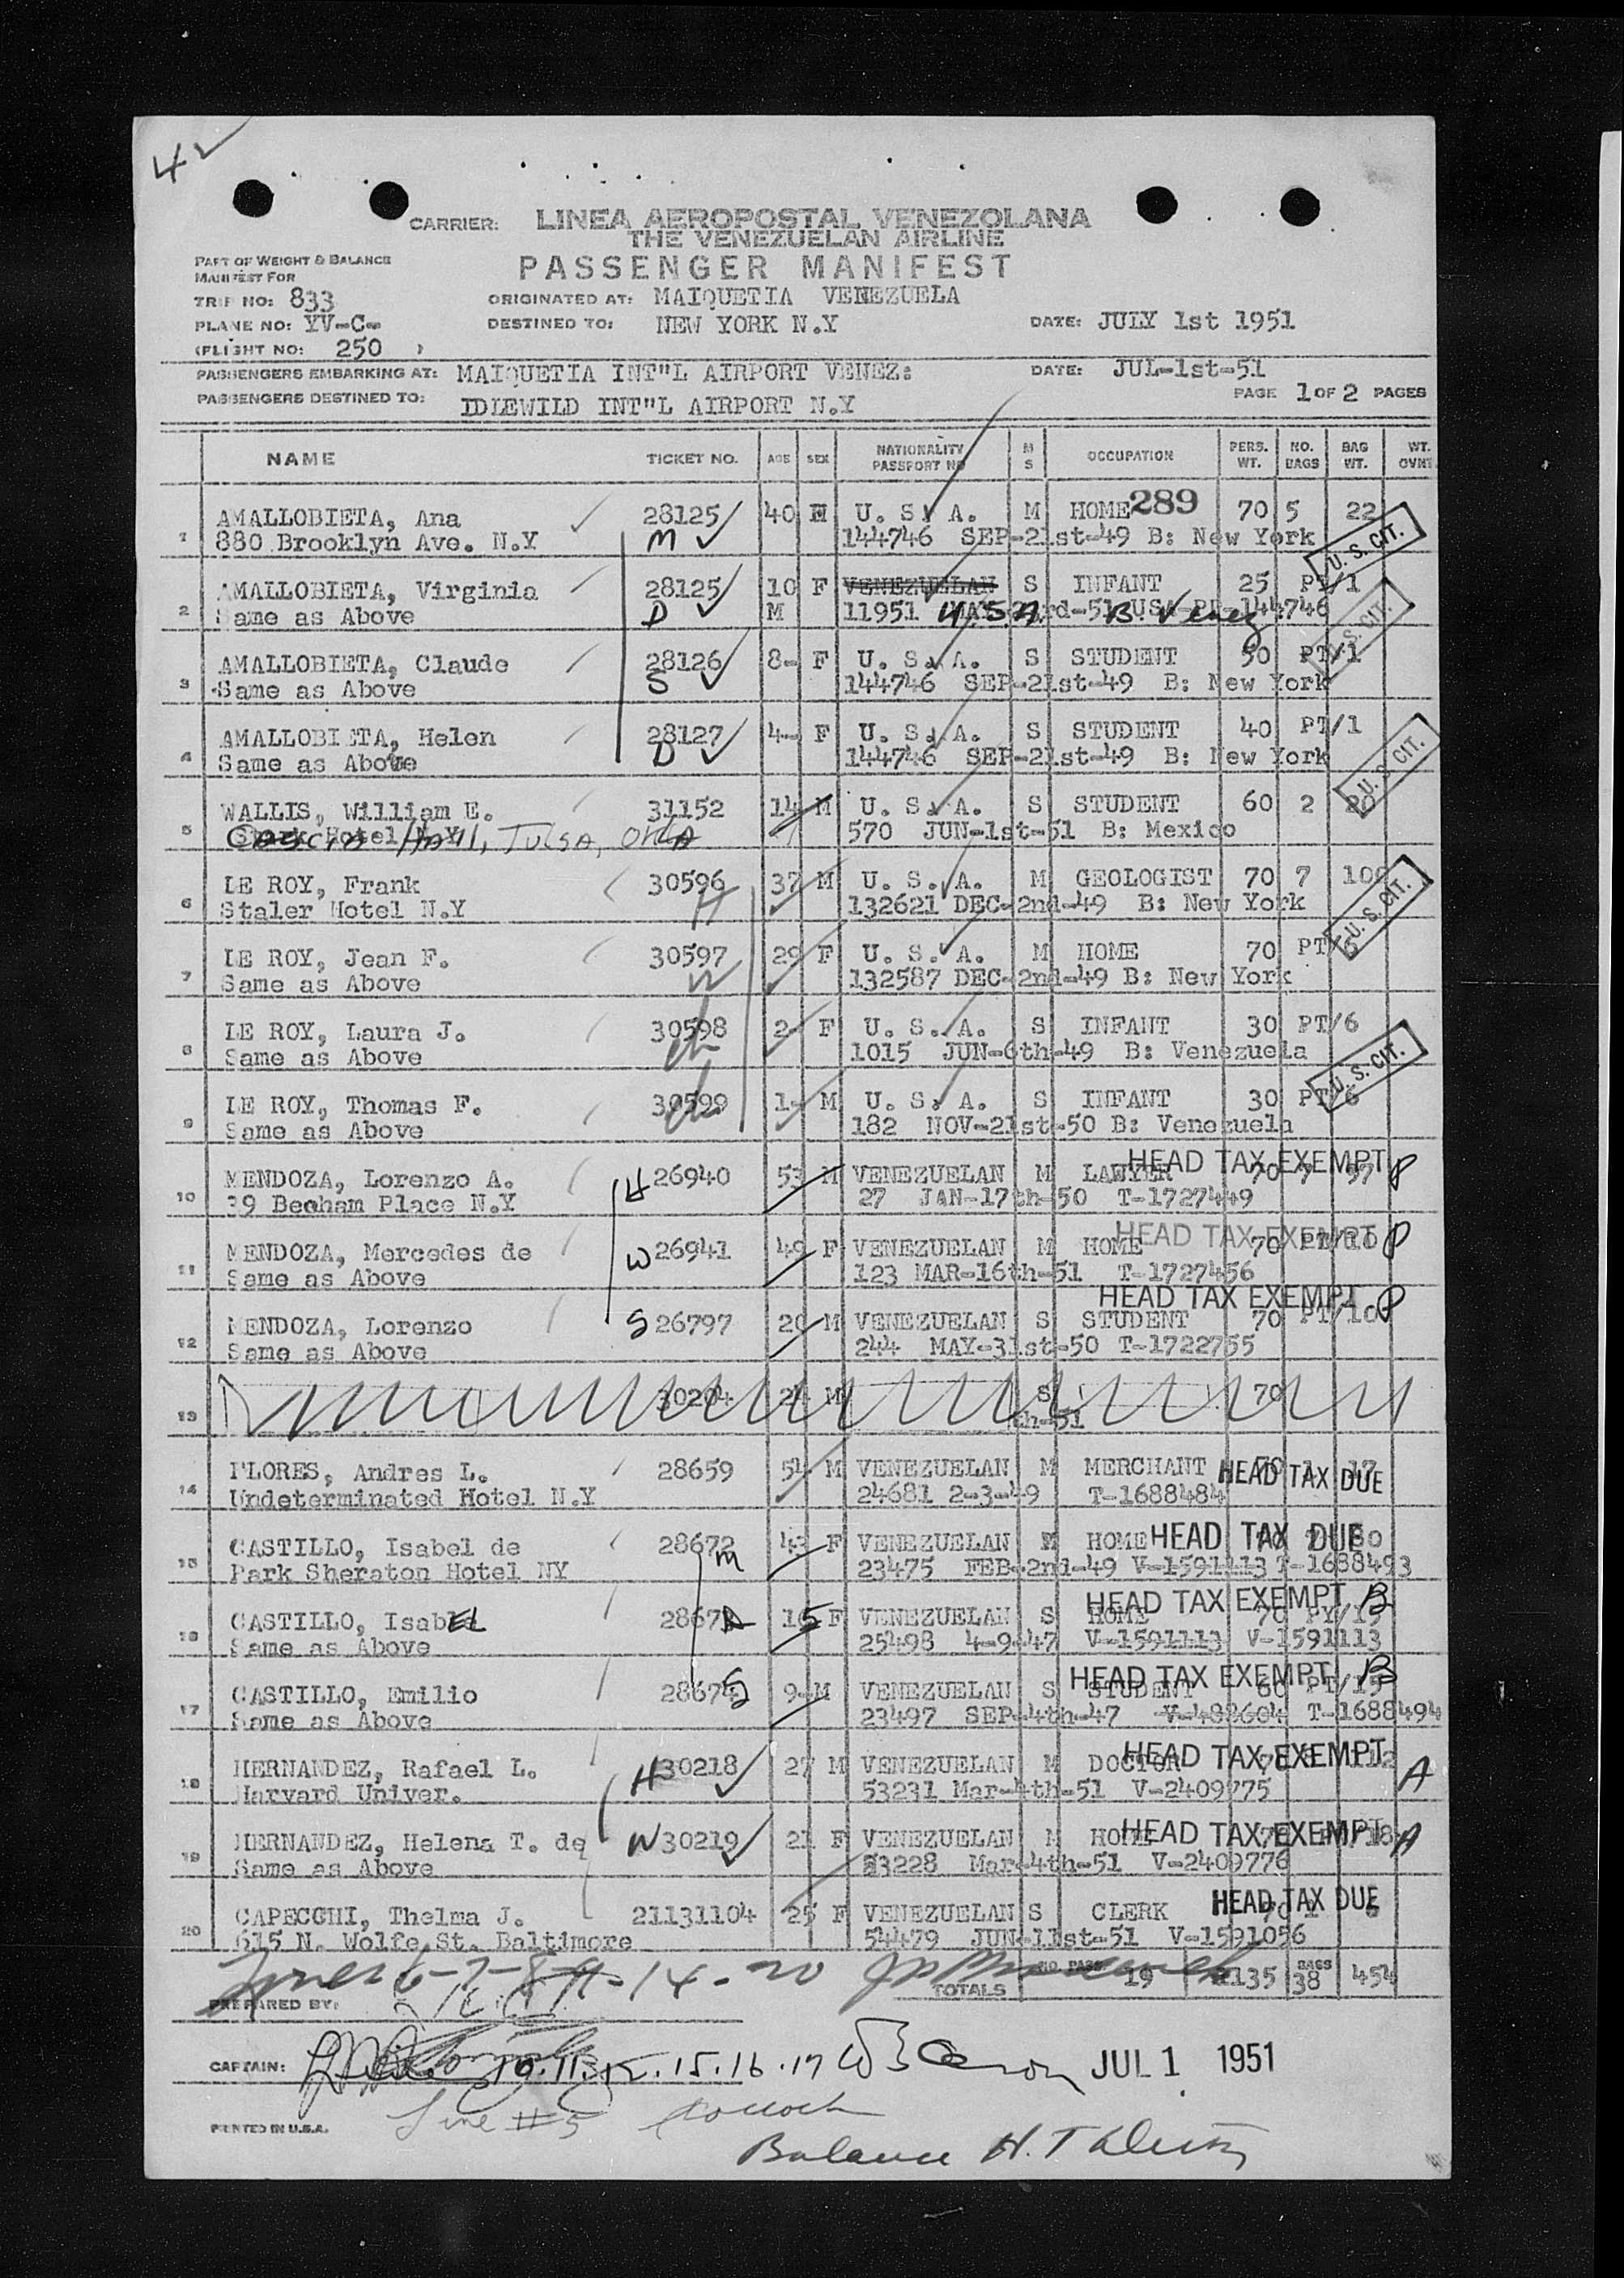 42
CARRIER: LINEA AEROPOSTAL VENEZOLANA
THE VENEZUELAN AIRLINE
PART OF WEIGHT & BALANCE
MANIFEST FOR
PASSENGER MANIFEST
TRIP NO: 833 ORIGINATED AT: MAIQUETIA VENEZUELA
PLANE NO: YV-C- DESTINED TO: NEW YORK N.Y DATE: JULY 1st 1951
(FLIGHT NO: 250 )
PASSENGERS EMBARKING AT: MAIQUETIA INT"L AIRPORT VENEZ: DATE: JUL-1st-51
PASSENGERS DESTINED TO: IDLEWILD INT"L AIRPORT N.Y PAGE 1 OF 2 PAGES
NAME TICKET NO. AGE SEX NATIONALITY PASSPORT NO M S OCCUPATION PERS. WT. NO. BAGS BAG WT. WT. OVNT.
1 AMALLOBIETA, Ana 28125 40 U. S. A. M HOME 289 70 5 22
880 Brooklyn Ave. N.Y M 144746 SEP-21st-49 B: New York U. S. CIT.
2 AMALLOBIETA, Virginia 28125 10 F VENEZUELAN S INFANT 25 PT/1
Same as Above D M 11951 U.S.A. rd-51 USA-PP-144746 B. Venez U. S. CIT.
3 AMALLOBIETA, Claude 28126 8- F U. S. A. S STUDENT 50 PT/1
Same as Above S 144746 SEP-21st-49 B: New York
4 AMALLOBIETA, Helen 28127 4- F U. S. A. S STUDENT 40 PT/1
Same as Above D 144746 SEP-21st-49 B: New York U. S. CIT.
5 WALLIS, William E. 31152 14 M U. S. A. S STUDENT 60 2 20
Cascia Hall, TULSA, OKLA 570 JUN-1st-51 B: Mexico
6 LE ROY, Frank 30596 37 M U. S. A. M GEOLOGIST 70 7 100
Staler Hotel N.Y H 132621 DEC-2nd-49 B: New York U. S. CIT.
7 LE ROY, Jean F. 30597 29 F U. S. A. M HOME 70 PT/6
Same as Above W 132587 DEC-2nd-49 B: New York
8 LE ROY, Laura J. 30598 2- F U. S. A. S INFANT 30 PT/6
Same as Above ch 1015 JUN-6th-49 B: Venezuela U. S. CIT.
9 LE ROY, Thomas F. 30599 1- M U. S. A. S INFANT 30 PT/6
Same as Above ch 182 NOV-21st-50 B: Venezuela
10 MENDOZA, Lorenzo A. H 26940 53 M VENEZUELAN M LAWYER HEAD TAX EXEMPT 70 7 97 P
39 Beeham Place N.Y 27 JAN-17th-50 T-1727449
11 MENDOZA, Mercedes de W 26941 49 F VENEZUELAN M HOME HEAD TAX EXEMPT 70 PT/10 P
Same as Above 123 MAR-16th-51 T-1727456
12 MENDOZA, Lorenzo S 26797 20 M VENEZUELAN S STUDENT HEAD TAX EXEMPT 70 PT/10 P
Same as Above 244 MAY-31st-50 T-1722755
13 30204 24 M S 70
th-51
14 FLORES, Andres L. 28659 54 M VENEZUELAN M MERCHANT HEAD TAX DUE 70 1 17
Undeterminated Hotel N.Y 24681 2-3-49 T-1688484
15 CASTILLO, Isabel de 28672 43 F VENEZUELAN M HOME HEAD TAX DUE
Park Sheraton Hotel NY m 23475 FEB-2nd-49 V-1591113 T-1688493
16 CASTILLO, IsabEL 2867 D 15 F VENEZUELAN S HOME HEAD TAX EXEMPT 70 PT/15 B
Same as Above 25498 4-9-47 V-1591113 V-1591113
17 CASTILLO, Emilio 28674 S 9- M VENEZUELAN S STUDENT HEAD TAX EXEMPT 60 PT/15 B
Same as Above 23497 SEP-4th-47 V-488604 T-1688494
18 HERNANDEZ, Rafael L. H 30218 27 M VENEZUELAN M DOCTOR HEAD TAX EXEMPT A
Harvard Univer. 53231 Mar-4th-51 V-2409775
19 HERNANDEZ, Helena T. de W 30219 21 F VENEZUELAN M HOME HEAD TAX EXEMPT A
Same as Above 53228 Mar-4th-51 V-2409776
20 CAPECCHI, Thelma J. 21131104 25 F VENEZUELAN S CLERK HEAD TAX DUE
615 N. Wolfe St. Baltimore 54479 JUN-11st-51 V-1591056
Lines 6-7-8-9-14-20 NO. PASS. 19 1135 BAGS 38 454
TOTALS
PREPARED BY:
CAPTAIN: 10.11.12.15.16.17 JUL 1 1951
Line #5
PRINTED IN U.S.A.
Balance